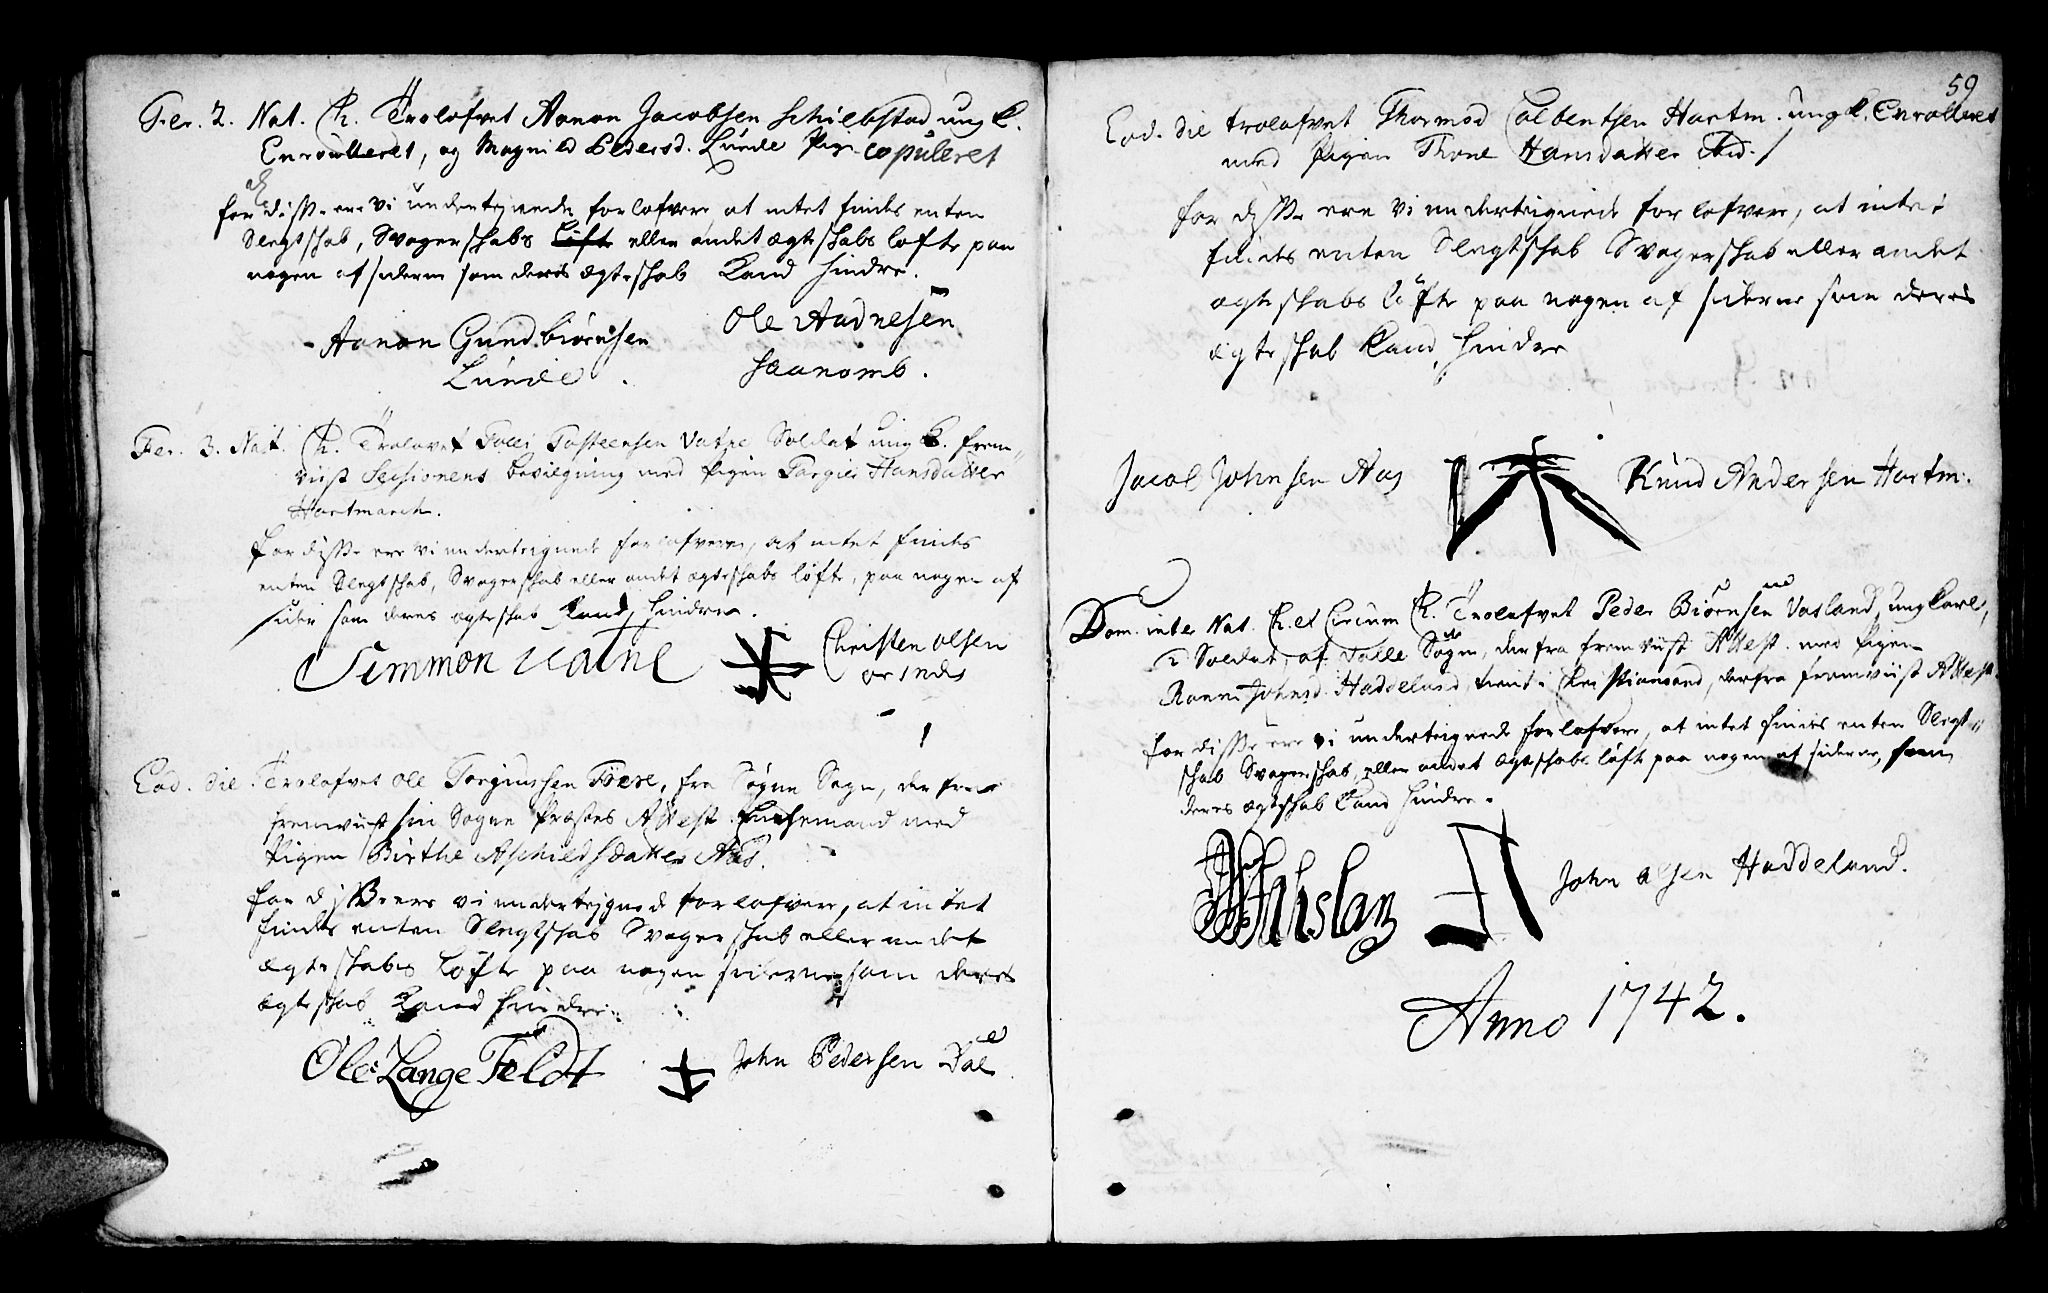 Fer. 2. Nat. Ch. Trolofvet Aanon Jacobsen Schielbstad ung k.
Enroulleret, og Magnild Pedersd. Lunde Pige copuleret
for diſse ere vi undertejnede forlofvere at intet findes enten
Slegtskab, Svogerskabs eller andet ægteskabs løfte paa
nogen af siderne som deris ægteskab kand hindre.
Aanon Gundbiørnsen Ole Aadnesen
Lunde. Haanomb.
Fer. 3. Nat. Ch. Trolovet Tolli Tosteensen Vatne Soldat ung k. frem
viist Sessionens bevilgning med Pigen Torgier Hansdatter
Hartmarch.
for diſse ere vi underteignede forlofvere, at intet findes
enten Slegtskab, Svogerskab eller andet ægteskabs løfte, paa nogen af
sider som deres ægteskab kand hindre.
Simmon Vatne Christen Olsen
Eod. die Trolofvet Ole Torgiussen, fra Søgne Sogn, der fra
fremviist sin Sogne Præstes Attest Enchemand med
Pigen Birthe Aschildsdatter Aas.
for diſse ere vi undertejgnede forlofvere, at intet
findes enten Slegtskab Svogerskab eller andet
ægteskabs løfte paa nogen siderne som deres
ægteskab kand hindre
Ole Lange Feldt John Pedersen Dal
59
Eod. die trolofvet Thormod Colbentsen Hartm. ung k. Enrolleret
med Pigen Thone Hansdatter ibid.
for diſse ere vi underteignede forlofvere, at intet
findes enten Slegtskab Svogerskab eller andet
ægteskabs løfte paa nogen af siderne som deres
ægteskab kand hindre
Jacob Johnsen Aas Knud Andersen Hartm:
Dom. inter Nat. Ch. et Circum Ch. Trolofvet Peder Biørnsen Vasland, ung karl,
Soldat af Valle Sogn, der fra fremviist Attest. med Pigen
Ranni Johnsd. Haddeland, tient i Christiansand, derfra fremviist Attest
for diſse ere vi undertegnede forlofvere, at intet findes enten Slegt
skab Svogerskab eller andet ægteskabs løft paa nogen af siderne, som
deres ægteskab kand hindre.
John Olsen Haddeland.
Anno 1742.